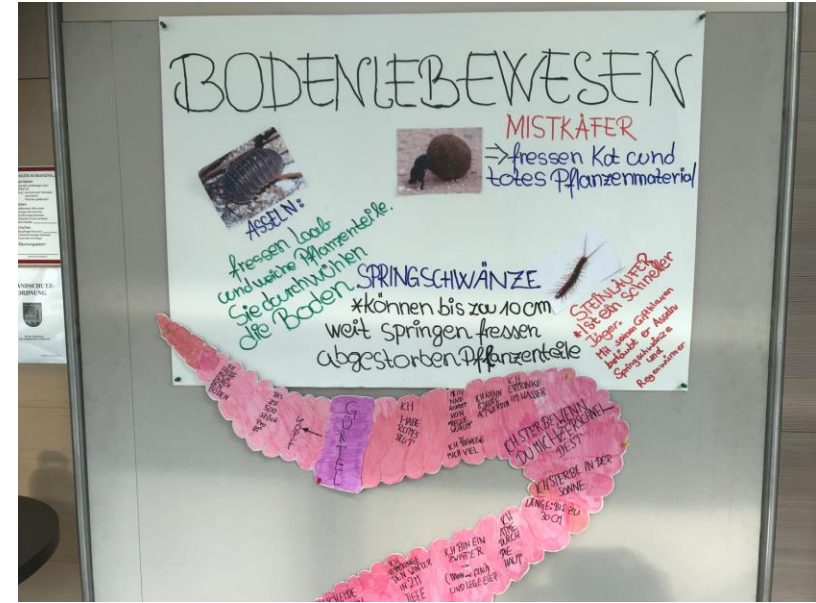 BODENLEBEWESEN
MISTKÄFER
⇒ fressen Kot und
totes Pflanzenmaterial
ASSELN:
fressen Laub
und weiche Pflanzenteile.
Sie durchwühlen
die Boden.
SPRINGSCHWÄNZE
*Können bis zu 10 cm
weit springen fressen
abgestorben Pflanzenteile
STEINLÄUFER
*Ist ein schneller
Jäger.
Mit seinen Giftklauen
betäubt er Asseln
Springschwänze
und
Regenwürmer
BIS
ZU
STÜCK
PRO
M²
KOPF
GÜRTEL
ICH
HABE
ROTES
BLUT
MEIN
NAME
KOMMT
VON
REGER
WURM
ICH BEWEGE
MICH VIEL
ICH KANN
8 JAHRE
ALT WERDEN
ICH
ERTRINKE
IM WASSER
ICH STERBE WENN
DU MICH ZERSCHNEI-
DEST
ICH STERBE IN DER
SONNE
LÄNGE: BIS ZU
30 CM
ICH
ATME
DURCH
DIE
HAUT
ICH BIN EIN
ZWITTER
UND LEGE EIER
ICH
DEN WINTER
IN 2M
TIEFE
ANDSCHUTZ-
ORDNUNG